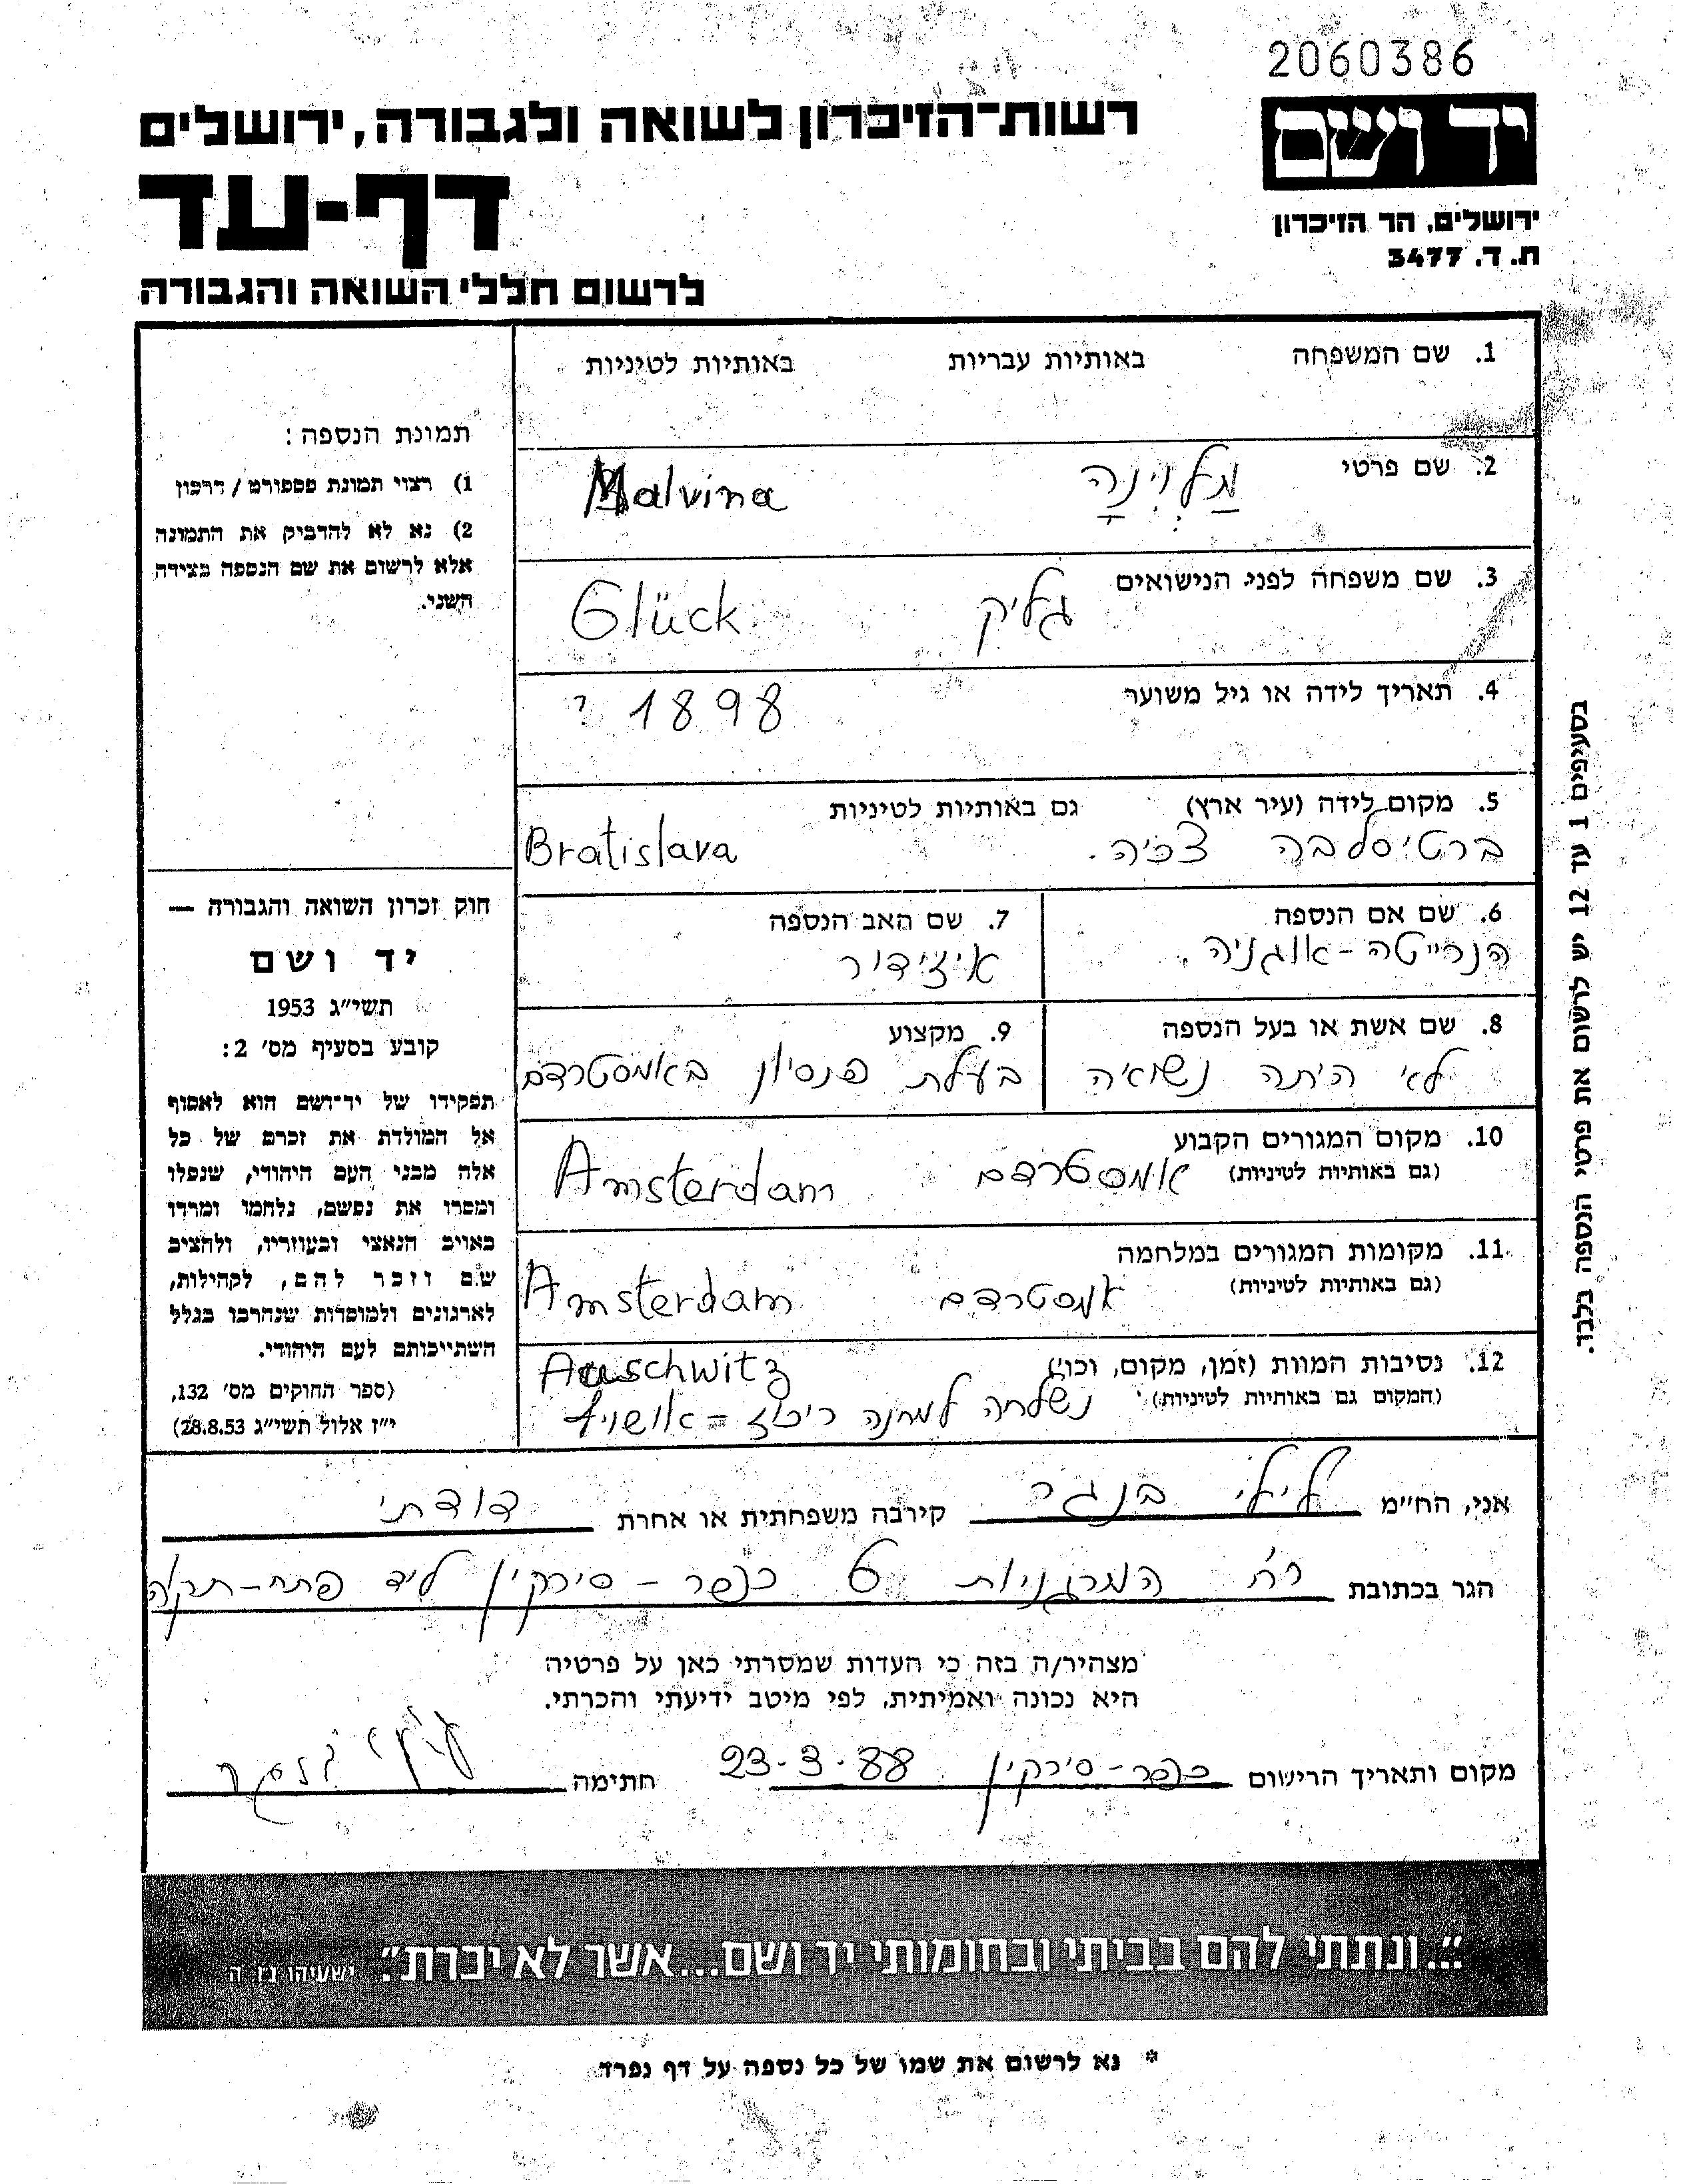 2060386
יד ושם
רשות־הזיכרון לשואה ולגבורה, ירושלים
דף-עד
ירושלים, הר הזיכרון
ת. ד. 3477
לרשום חללי השואה והגבורה
1. שם המשפחה באותיות עבריות באותיות לטיניות
2. שם פרטי מַלְוִינָה Malvina
3. שם משפחה לפני הנישואים גליק Glück
4. תאריך לידה או גיל משוער 1898 ?
5. מקום לידה (עיר ארץ) גם באותיות לטיניות
ברטיסלבה צכיה. Bratislava
6. שם אם הנספה 7. שם האב הנספה
הנרייטה-אוגניה איזידור
8. שם אשת או בעל הנספה 9. מקצוע
לא היתה נשואה בעלת פנסיון באמסטרדם
10. מקום המגורים הקבוע
(גם באותיות לטיניות) אמסטרדם Amsterdam
11. מקומות המגורים במלחמה
(גם באותיות לטיניות) אמסטרדם Amsterdam
12. נסיבות המוות (זמן, מקום, וכו׳) Auschwitz
(המקום גם באותיות לטיניות) נשלחה למחנה ריכוז = אושויץ
תמונת הנספה:
1) רצוי תמונת פספורט / דרכון
2) נא לא להדביק את התמונה
אלא לרשום את שם הנספה בצידה
השני.
חוק זכרון השואה והגבורה —
יד ושם
תשי״ג 1953
קובע בסעיף מס׳ 2:
תפקידו של יד־ושם הוא לאסוף
אל המולדת את זכרם של כל
אלה מבני העם היהודי, שנפלו
ומסרו את נפשם, נלחמו ומרדו
באויב הנאצי ובעוזריו, ולהציב
שם וזכר להם, לקהילות,
לארגונים ולמוסדות שנחרבו בגלל
השתייכותם לעם היהודי.
(ספר החוקים מס׳ 132,
י״ז אלול תשי״ג 28.8.53)
בסעיפים 1 עד 12 יש לרשום את פרטי הנספה בלבד.
אני, הח״מ לילי בנגר קירבה משפחתית או אחרת דודתי
הגר בכתובת רח׳ המרגניות 6 כפר-סירקין ליד פתח-תקוה
מצהיר/ה בזה כי העדות שמסרתי כאן על פרטיה
היא נכונה ואמיתית, לפי מיטב ידיעתי והכרתי.
מקום ותאריך הרישום כפר-סירקין 23-3-88 חתימה
״...ונתתי להם בביתי ובחומותי יד ושם...אשר לא יכרת״. ישעיהו נ״ו ה׳
* נא לרשום את שמו של כל נספה על דף נפרד